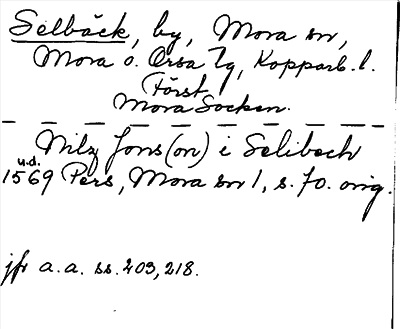 Selbäck, by, Mora sn,
Mora o. Orsa tg, Kopparb. l.
Först
Mora Socken.
Nilz Jons(on) i Selibech
u.d.
1569 Pers, Mora sn 1, s. 70. orig.
jfr a.a. ss. 209, 218.